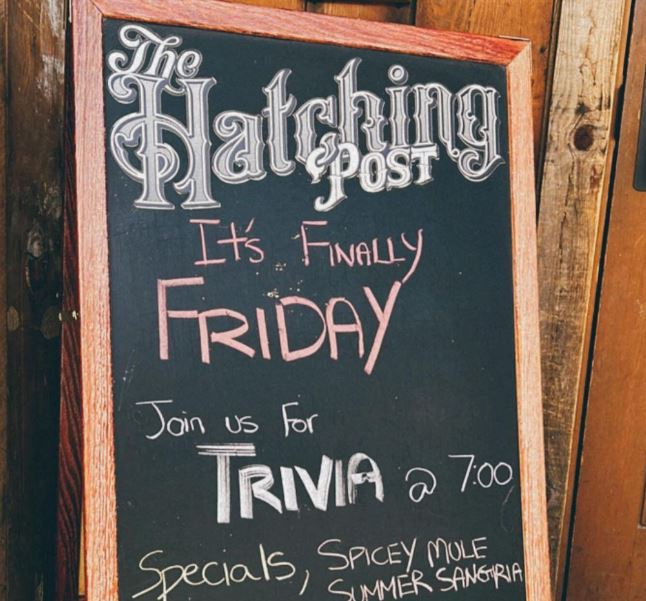 The
Hatching
Post
It's Finally
Friday
Join us for
Trivia @ 7:00
Specials, Spicey Mule
Summer Sangria